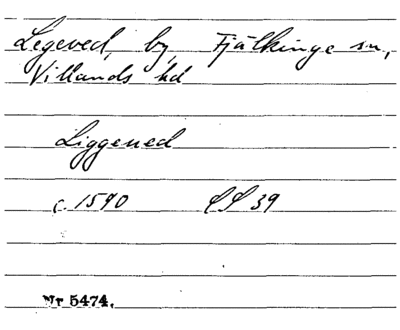 Legeved, by, Fjälkinge sn,
Villands hd
Liggeued
c. 1590 LL 39
Nr 5474.